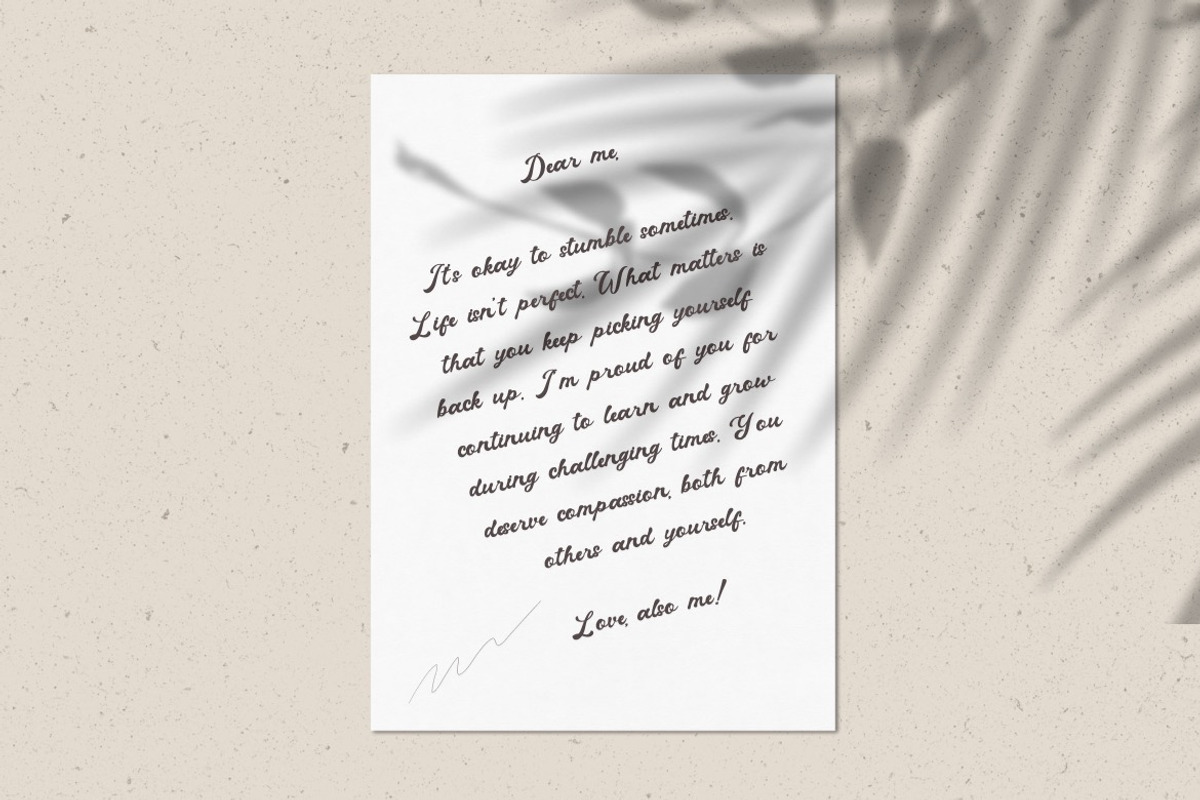 Dear me,
It's okay to stumble sometimes.
Life isn't perfect. What matters is
that you keep picking yourself
back up. I'm proud of you for
continuing to learn and grow
during challenging times. You
deserve compassion, both from
others and yourself.
Love, also me!